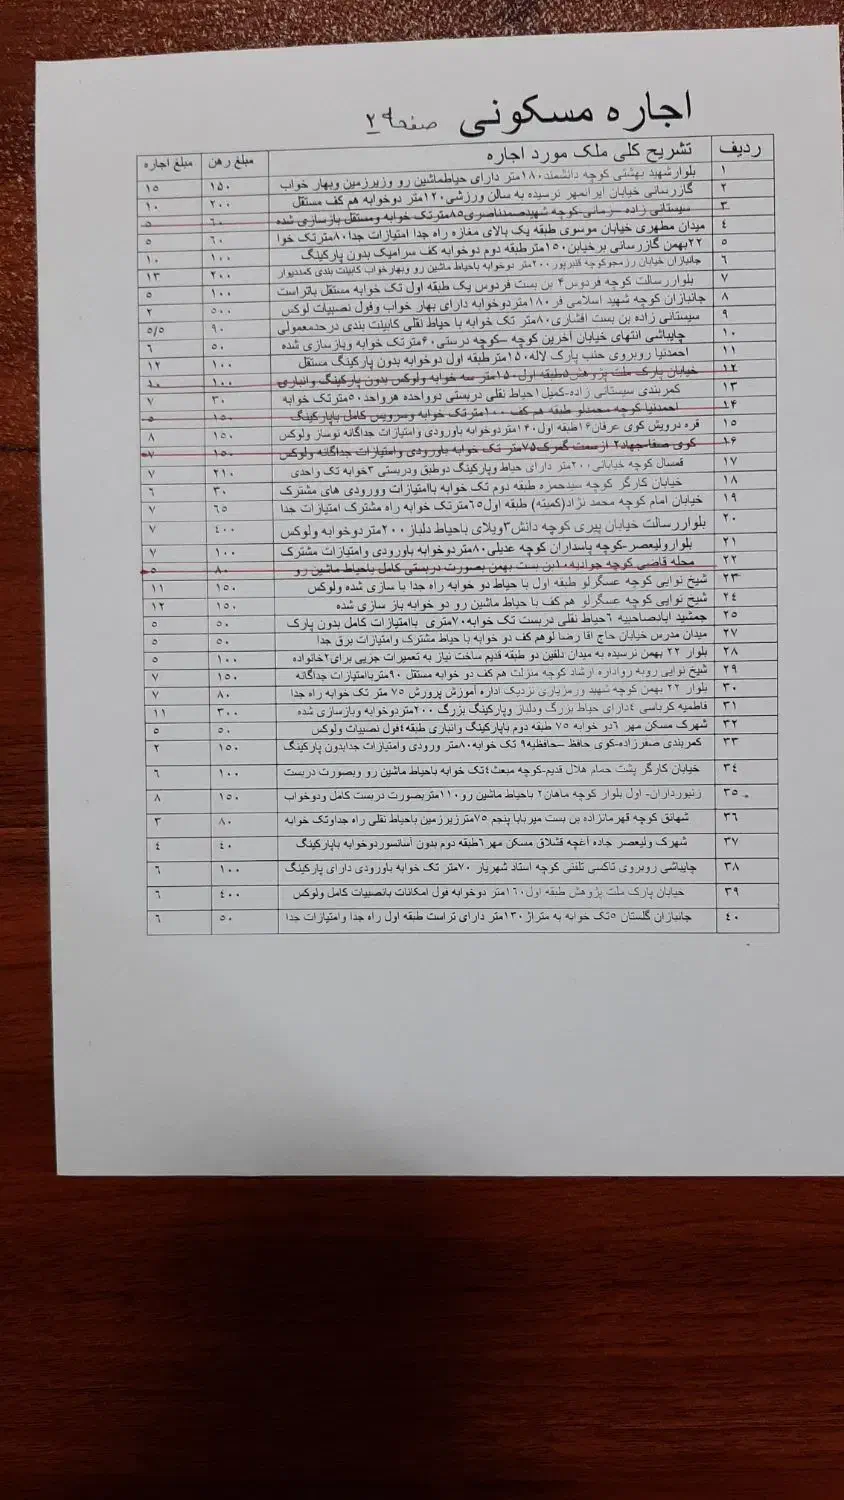 اجاره مسکونی صفحه ۲
ردیف تشریح کلی ملک مورد اجاره مبلغ رهن مبلغ اجاره
۱ بلوارشهید بهشتی کوچه دانشمند۱۸۰متر دارای حیاطماشین رو وزیرزمین وبهار خواب ۱۵۰ ۱۵
۲ گازرسانی خیابان ایرانمهر نرسیده به سالن ورزشی۱۲۰متر دوخوابه هم کف مستقل ۲۰۰ ۱۰
۳ سیستانی زاده –نرمانی-کوچه شهیدصمدناصری۸۵مترتک خوابه ومستقل بازسازی شده ۶۰ ۵
۴ میدان مطهری خیابان موسوی طبقه یک بالای مغازه راه جدا امتیازات جدا۸۰مترتک خوا ۶۰ ۵
۵ ۲۲بهمن گازرسانی برخیابن۱۵۰مترطبقه دوم دوخوابه کف سرامیک بدون پارکینگ ۱۰۰ ۱۰
۶ جانبازان خیابان رزمجوکوچه قنبرپور۲۰۰متر دوخوابه باحیاط ماشین رو وبهارخواب کابینت بندی کمددیوار ۲۰۰ ۱۳
۷ بلواررسالت کوچه فردوس۴ بن بست فردوس یک طبقه اول تک خوابه مستقل باتراست ۱۰۰ ۵
۸ جانبازان کوچه شهید اسلامی فر۱۸۰متردوخوابه دارای بهار خواب وفول نصبیات لوکس ۵۰۰ ۲
۹ سیستانی زاده بن بست افشاری۸۰متر تک خوابه با حیاط نقلی کابینت بندی درحدمعمولی ۹۰ ۵/۵
۱۰ چایباشی انتهای خیابان آخرین کوچه –کوچه درستی۶۰مترتک خوابه وبازسازی شده ۵۰ ۶
۱۱ احمدنیا روبروی جنب پارک لاله۱۵۰مترطبقه اول دوخوابه بدون پارکینگ مستقل ۱۰۰ ۱۲
۱۲ خیابان پارک ملت پژوهش۵طبقه اول۱۵۰متر سه خوابه ولوکس بدون پارکینگ وانباری ۱۰۰ ۱۰
۱۳ کمربندی سیستانی زاده-کمیل۱حیاط نقلی دربستی دوواحده هرواحد۵۰مترتک خوابه ۳۰ ۷
۱۴ احمدنیا کوچه محمدلو طبقه هم کف ۱۰۰مترتک خوابه وسرویس کامل باپارکینگ ۱۵۰ ۵
۱۵ قره درویش کوی عرفان۱۶طبقه اول۱۴۰متردوخوابه باورودی وامتیازات جداگانه نوساز ولوکس ۱۵۰ ۸
۱۶ کوی صفا-جهاد۲ ازسمت گمرک۷۵متر تک خوابه باورودی وامتیازات جداگانه ولوکس ۱۵۰ ۷
۱۷ قمسال کوچه خیابانی۲۰۰متر دارای حیاط وپارکینگ دوطبق ودربستی ۳خوابه تک واحدی ۲۱۰ ۷
۱۸ خیابان کارگر کوچه سیدحمزه طبقه دوم تک خوابه باامتیازات وورودی های مشترک ۳۰ ۶
۱۹ خیابان امام کوچه محمد نژاد(کمیته) طبقه اول۶۵مترتک خوابه راه مشترک امتیازات جدا ۶۵ ۷
۲۰ بلواررسالت خیابان پیری کوچه دانش۳ویلای باحیاط دلباز۲۰۰متردوخوابه ولوکس ۴۰۰ ۷
۲۱ بلوارولیعصر-کوچه پاسداران کوچه عدیلی۸۰متردوخوابه باورودی وامتیازات مشترک ۱۰۰ ۷
۲۲ محله قاضی کوچه جوادیه۱۰بن بست بهمن بصورت دربستی کامل باحیاط ماشین رو ۸۰ ۵
۲۳ شیخ نوایی کوچه عسگرلو طبقه اول با حیاط دو خوابه راه جدا با سازی شده ولوکس ۱۵۰ ۱۱
۲۴ شیخ نوایی کوچه عسگرلو هم کف با حیاط ماشین رو دو خوابه باز سازی شده ۱۵۰ ۱۲
۲۵ جمشید ابادصاحبیه ۶حیاط نقلی دربست تک خوابه۷۰متری باامتیازات کامل بدون پارک ۵۰ ۵
۲۷ میدان مدرس خیابان حاج اقا رضا لوهم کف دو خوابه با حیاط مشترک وامتیازات برق جدا ۵۰ ۵
۲۸ بلوار ۲۲ بهمن نرسیده به میدان دلفین دو طبقه قدیم ساخت نیاز به تعمیرات جزیی برای۲خانواده ۱۰۰ ۵
۲۹ شیخ نوایی روبه رواداره ارشاد کوچه منزلت هم کف دو خوابه مستقل ۹۰متریاامتیازات جداگانه ۱۵۰ ۷
۳۰ بلوار ۲۲ بهمن کوچه شهید ورمزیاری نزدیک اداره آموزش پرورش ۷۵ متر تک خوابه راه جدا ۸۰ ۷
۳۱ فاطمیه کرباسی ۴دارای حیاط بزرگ ودلباز وپارکینگ بزرگ ۲۰۰متردوخوابه وبازسازی شده ۳۰۰ ۱۱
۳۲ شهرک مسکن مهر ۶دو خوابه ۷۵ طبقه دوم باپارکینگ وانباری طبقه۴فول نصبیات ولوکس ۵۰ ۵
۳۳ کمربندی صفرزاده-کوی حافظ –حافظیه۹ تک خوابه۸۰متر ورودی وامتیازات جدابدون پارکینگ ۱۵۰ ۲
۳۴ خیابان کارگر پشت حمام هلال قدیم-کوچه مبعث۴تک خوابه باحیاط ماشین رو وبصورت دربست ۱۰۰ ۶
۳۵ زنبورداران- اول بلوار کوچه ماهان۲ باحیاط ماشین رو۱۱۰متربصورت دربست کامل ودوخواب ۱۵۰ ۸
۳۶ شهانق کوچه قهرمانزاده بن بست میربابا پنجم ۷۵مترزیرزمین باحیاط نقلی راه جداوتک خوابه ۸۰ ۳
۳۷ شهرک ولیعصر جاده آغچه قشلاق مسکن مهر۶طبقه دوم بدون آسانسوردوخوابه باپارکینگ ۴۰ ۴
۳۸ چایباشی روبروی تاکسی تلفنی کوچه استاد شهریار ۷۰متر تک خوابه باورودی دارای پارکینگ ۱۰۰ ۶
۳۹ خیابان پارک ملت پژوهش طبقه اول۱۶۰متر دوخوابه فول امکانات بانصبیات کامل ولوکس ۴۰۰ ۶
۴۰ جانبازان گلستان ۵تک خوابه به متراژ۱۳۰متر دارای تراست طبقه اول راه جدا وامتیازات جدا ۵۰ ۶